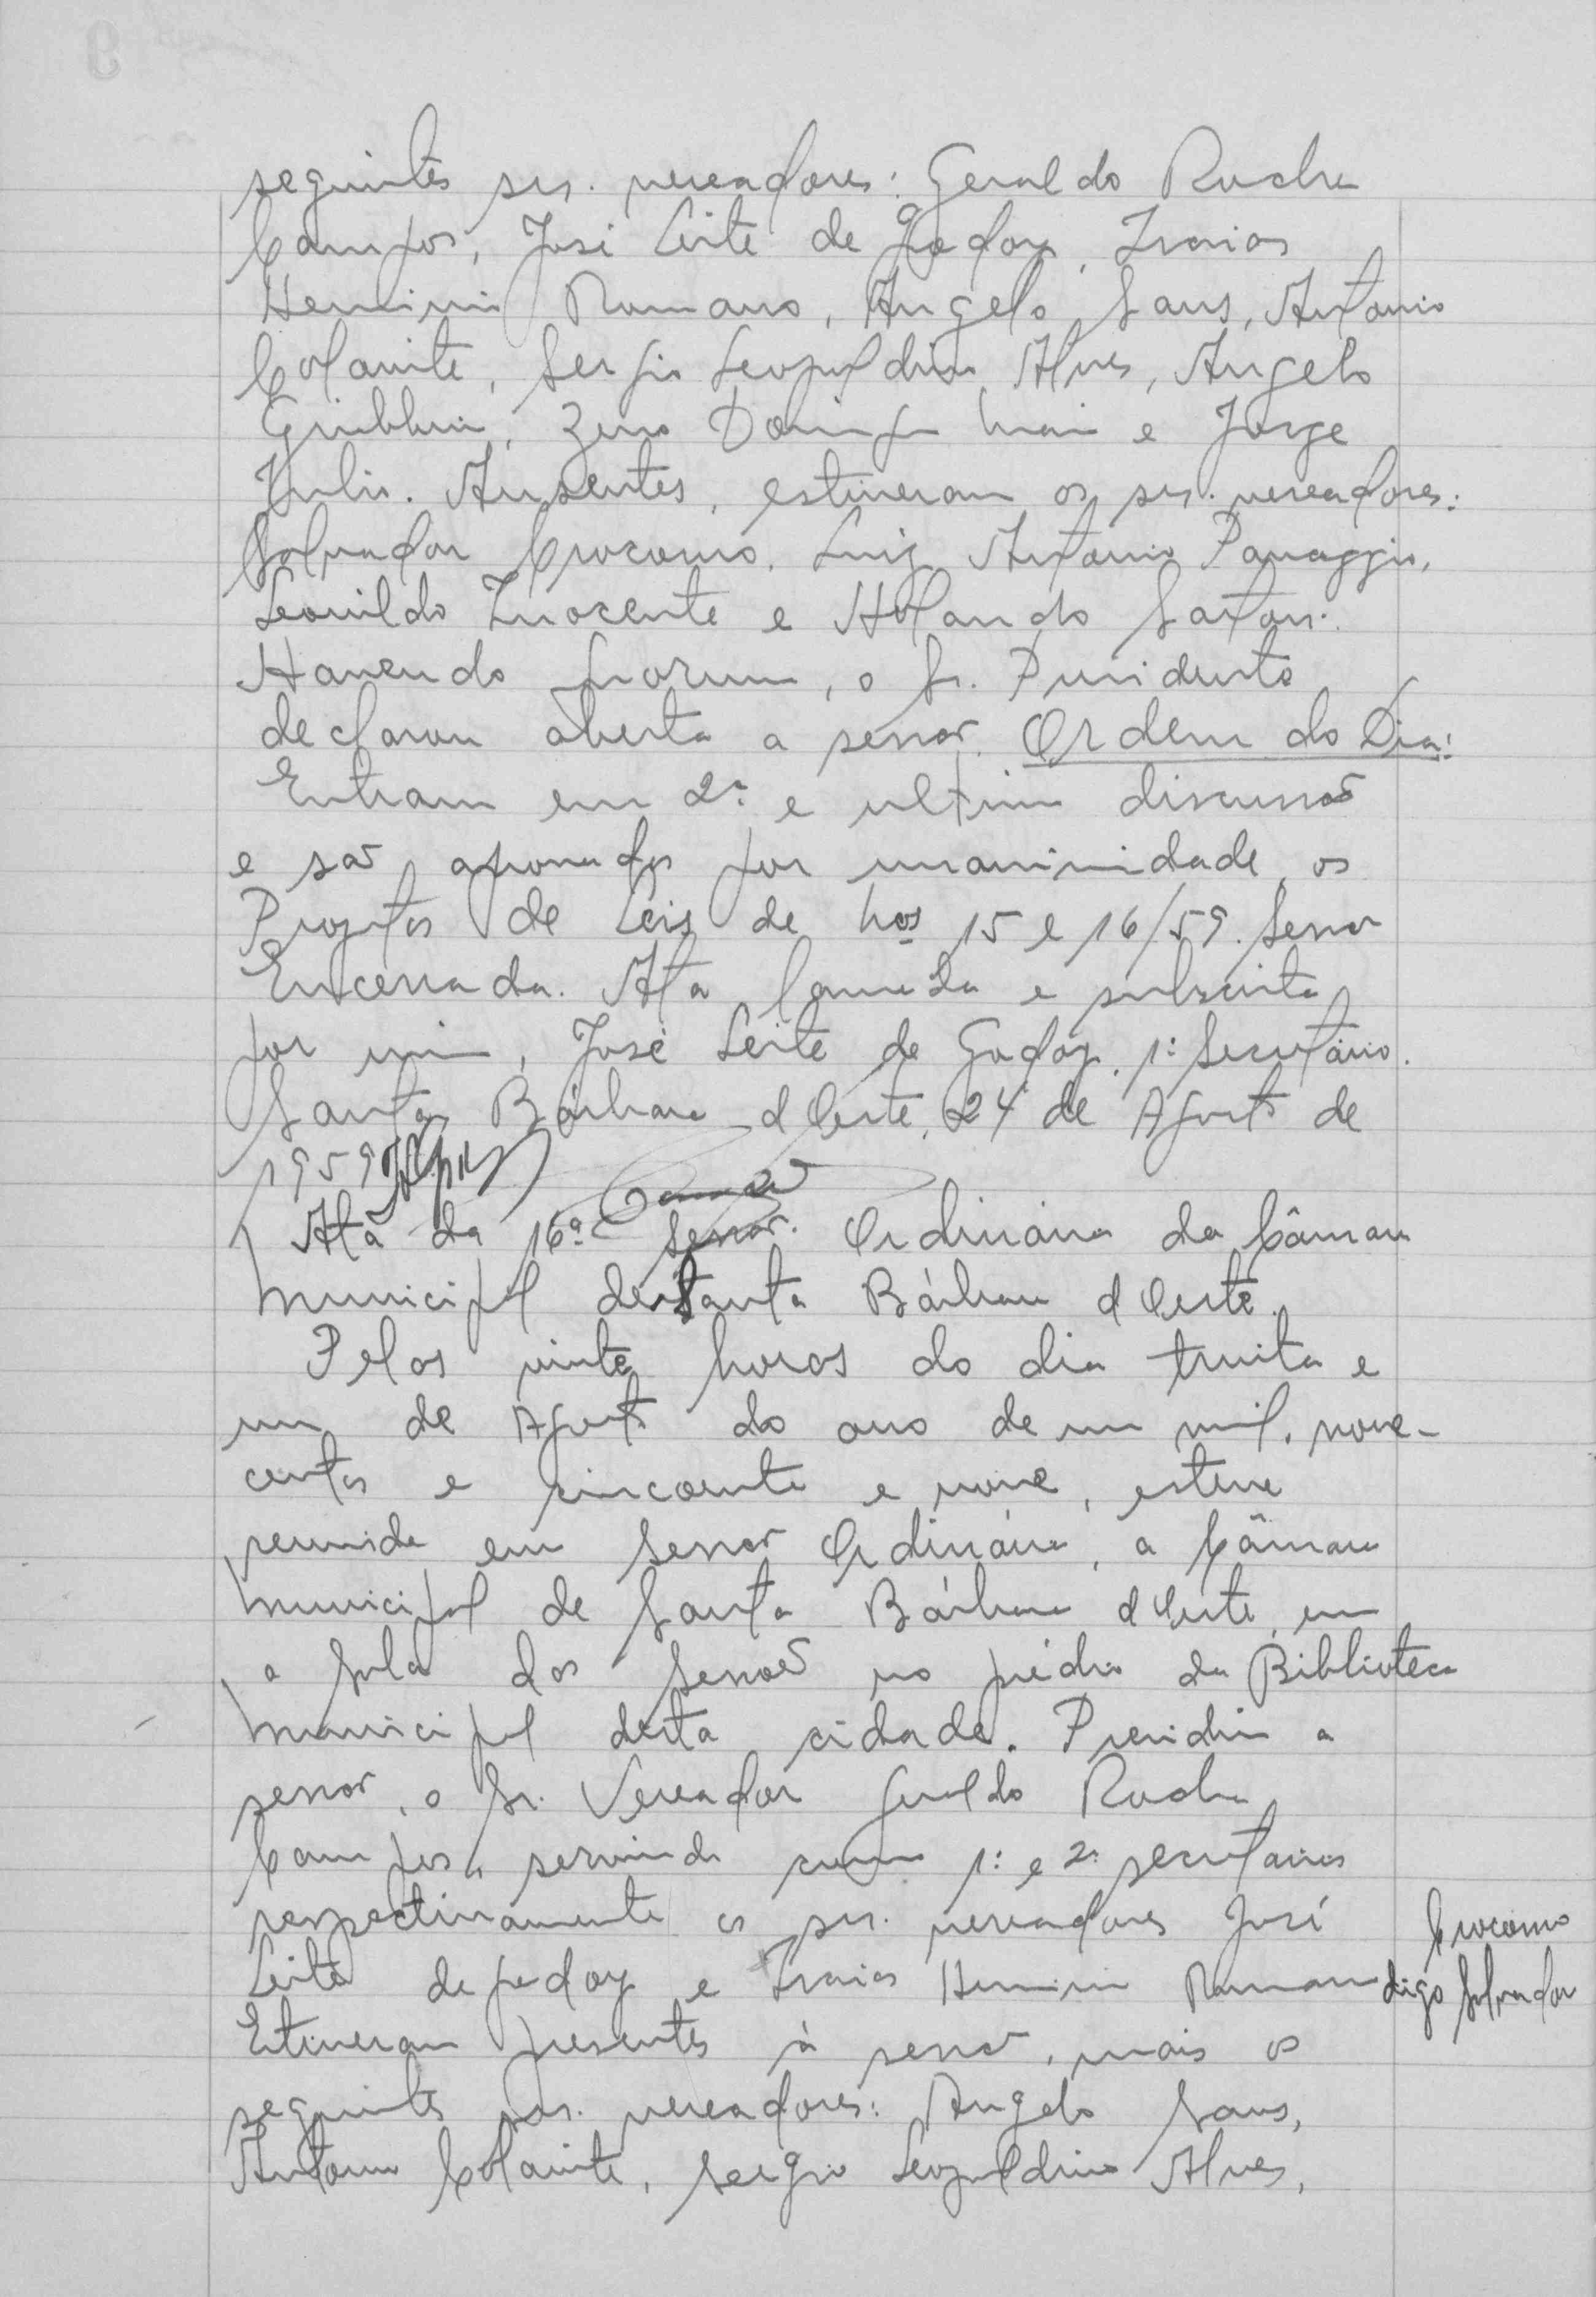 seguintes srs. vereadores: Geraldo Rocha
Campos, José Leite de Godoy, Izaias
Herminio Romano, Angelo Sans, Antonio
Colavite, Sergio Leopoldino Alves, Angelo
Giubbina, Zeno Domingos Maia e Jorge
Julio. Ausentes, estiveram os srs. vereadores:
Salvador Crocomo, Luiz Antonio Panaggio,
Leonildo Inocente e Holando Satori.
Havendo quorum, o Sr. Presidente
declarou aberta a sessão. Ordem do Dia:
Entram em 2ª e ultima discussão
e são aprovados por unanimidade, os
Projetos de Leis de nos 15 e 16/59. Sessão
Encerrada. Ata lavrada e subscrita
por mim, José Leite de Godoy, 1º Secretário.
Santa Bárbara d Oeste, 24 de Agosto de
1959
Ata da 16ª Sessão Ordinária da Câmara
Municipal de Santa Bárbara d Oeste.
Pelas vinte horas do dia trinta e
um de Agosto do ano de um mil, nove-
centos e cincoenta e nove, esteve
reunida em Sessão Ordinária, a Câmara
Municipal de Santa Bárbara d Oeste, em
a sala das Sessões no prédio da Biblioteca
Municipal desta cidade. Presidiu a
sessão, o Sr. Vereador Geraldo Rocha
Campos, servindo como 1º e 2º secretarios
respectivamente os srs. vereadores José
Leite de Godoy e Izaias Herminio Romano digo Salvador
Crocomo
Estiveram presentes à sessão, mais os
seguintes srs. vereadores: Angelo Sans,
Antonio Colavite, Sergio Leopoldino Alves,